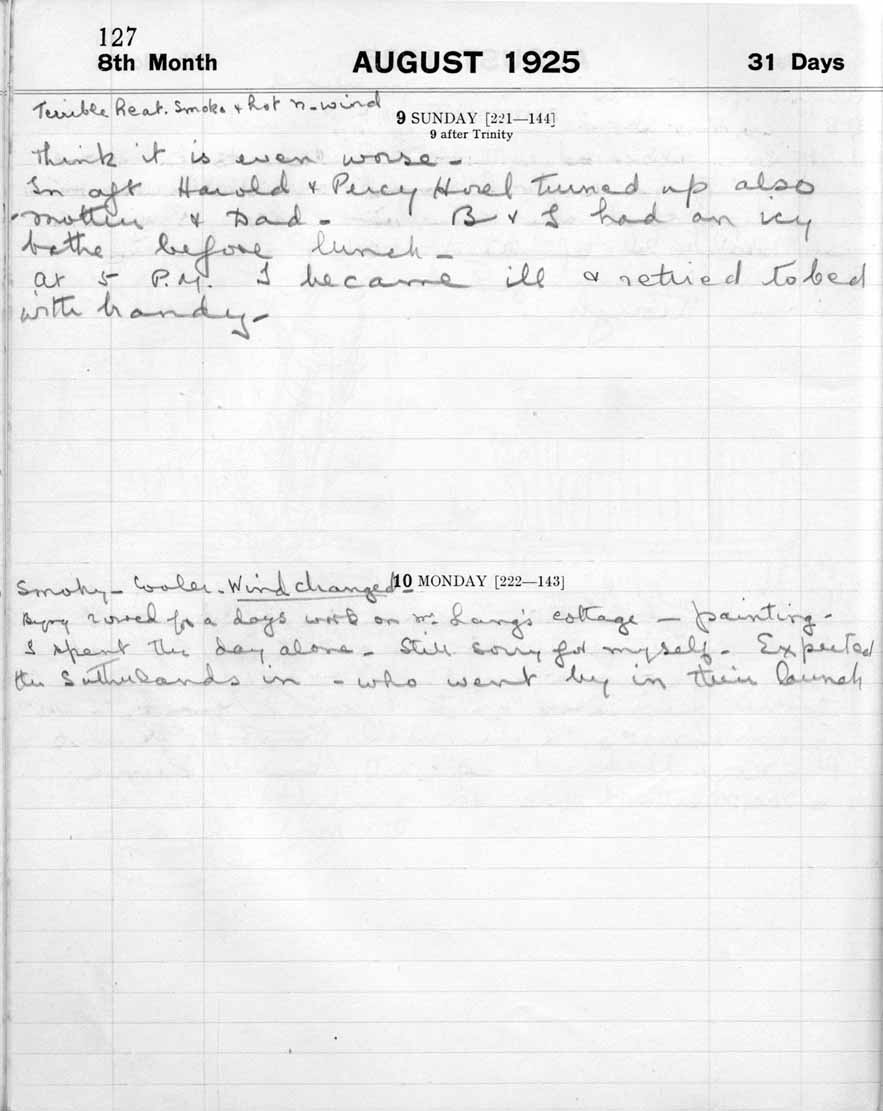 127
8th Month AUGUST 1925 31 Days
Terrible heat. Smoke & hot n-wind
9 SUNDAY [221—144]
9 after Trinity
Think it is even worse -
In aft Harold & Percy turned up also
Mother & Dad - B & I had an icy
bathe before lunch -
at 5 P.M. I became ill & retired to bed
with brandy -
Smoky - Cooler - Wind changed -
10 MONDAY [222—143]
rowed for a days work on Mr Lang's cottage - painting -
I spent the day alone - Still sorry for myself - Expected
the Sutherlands in - who went by in their launch